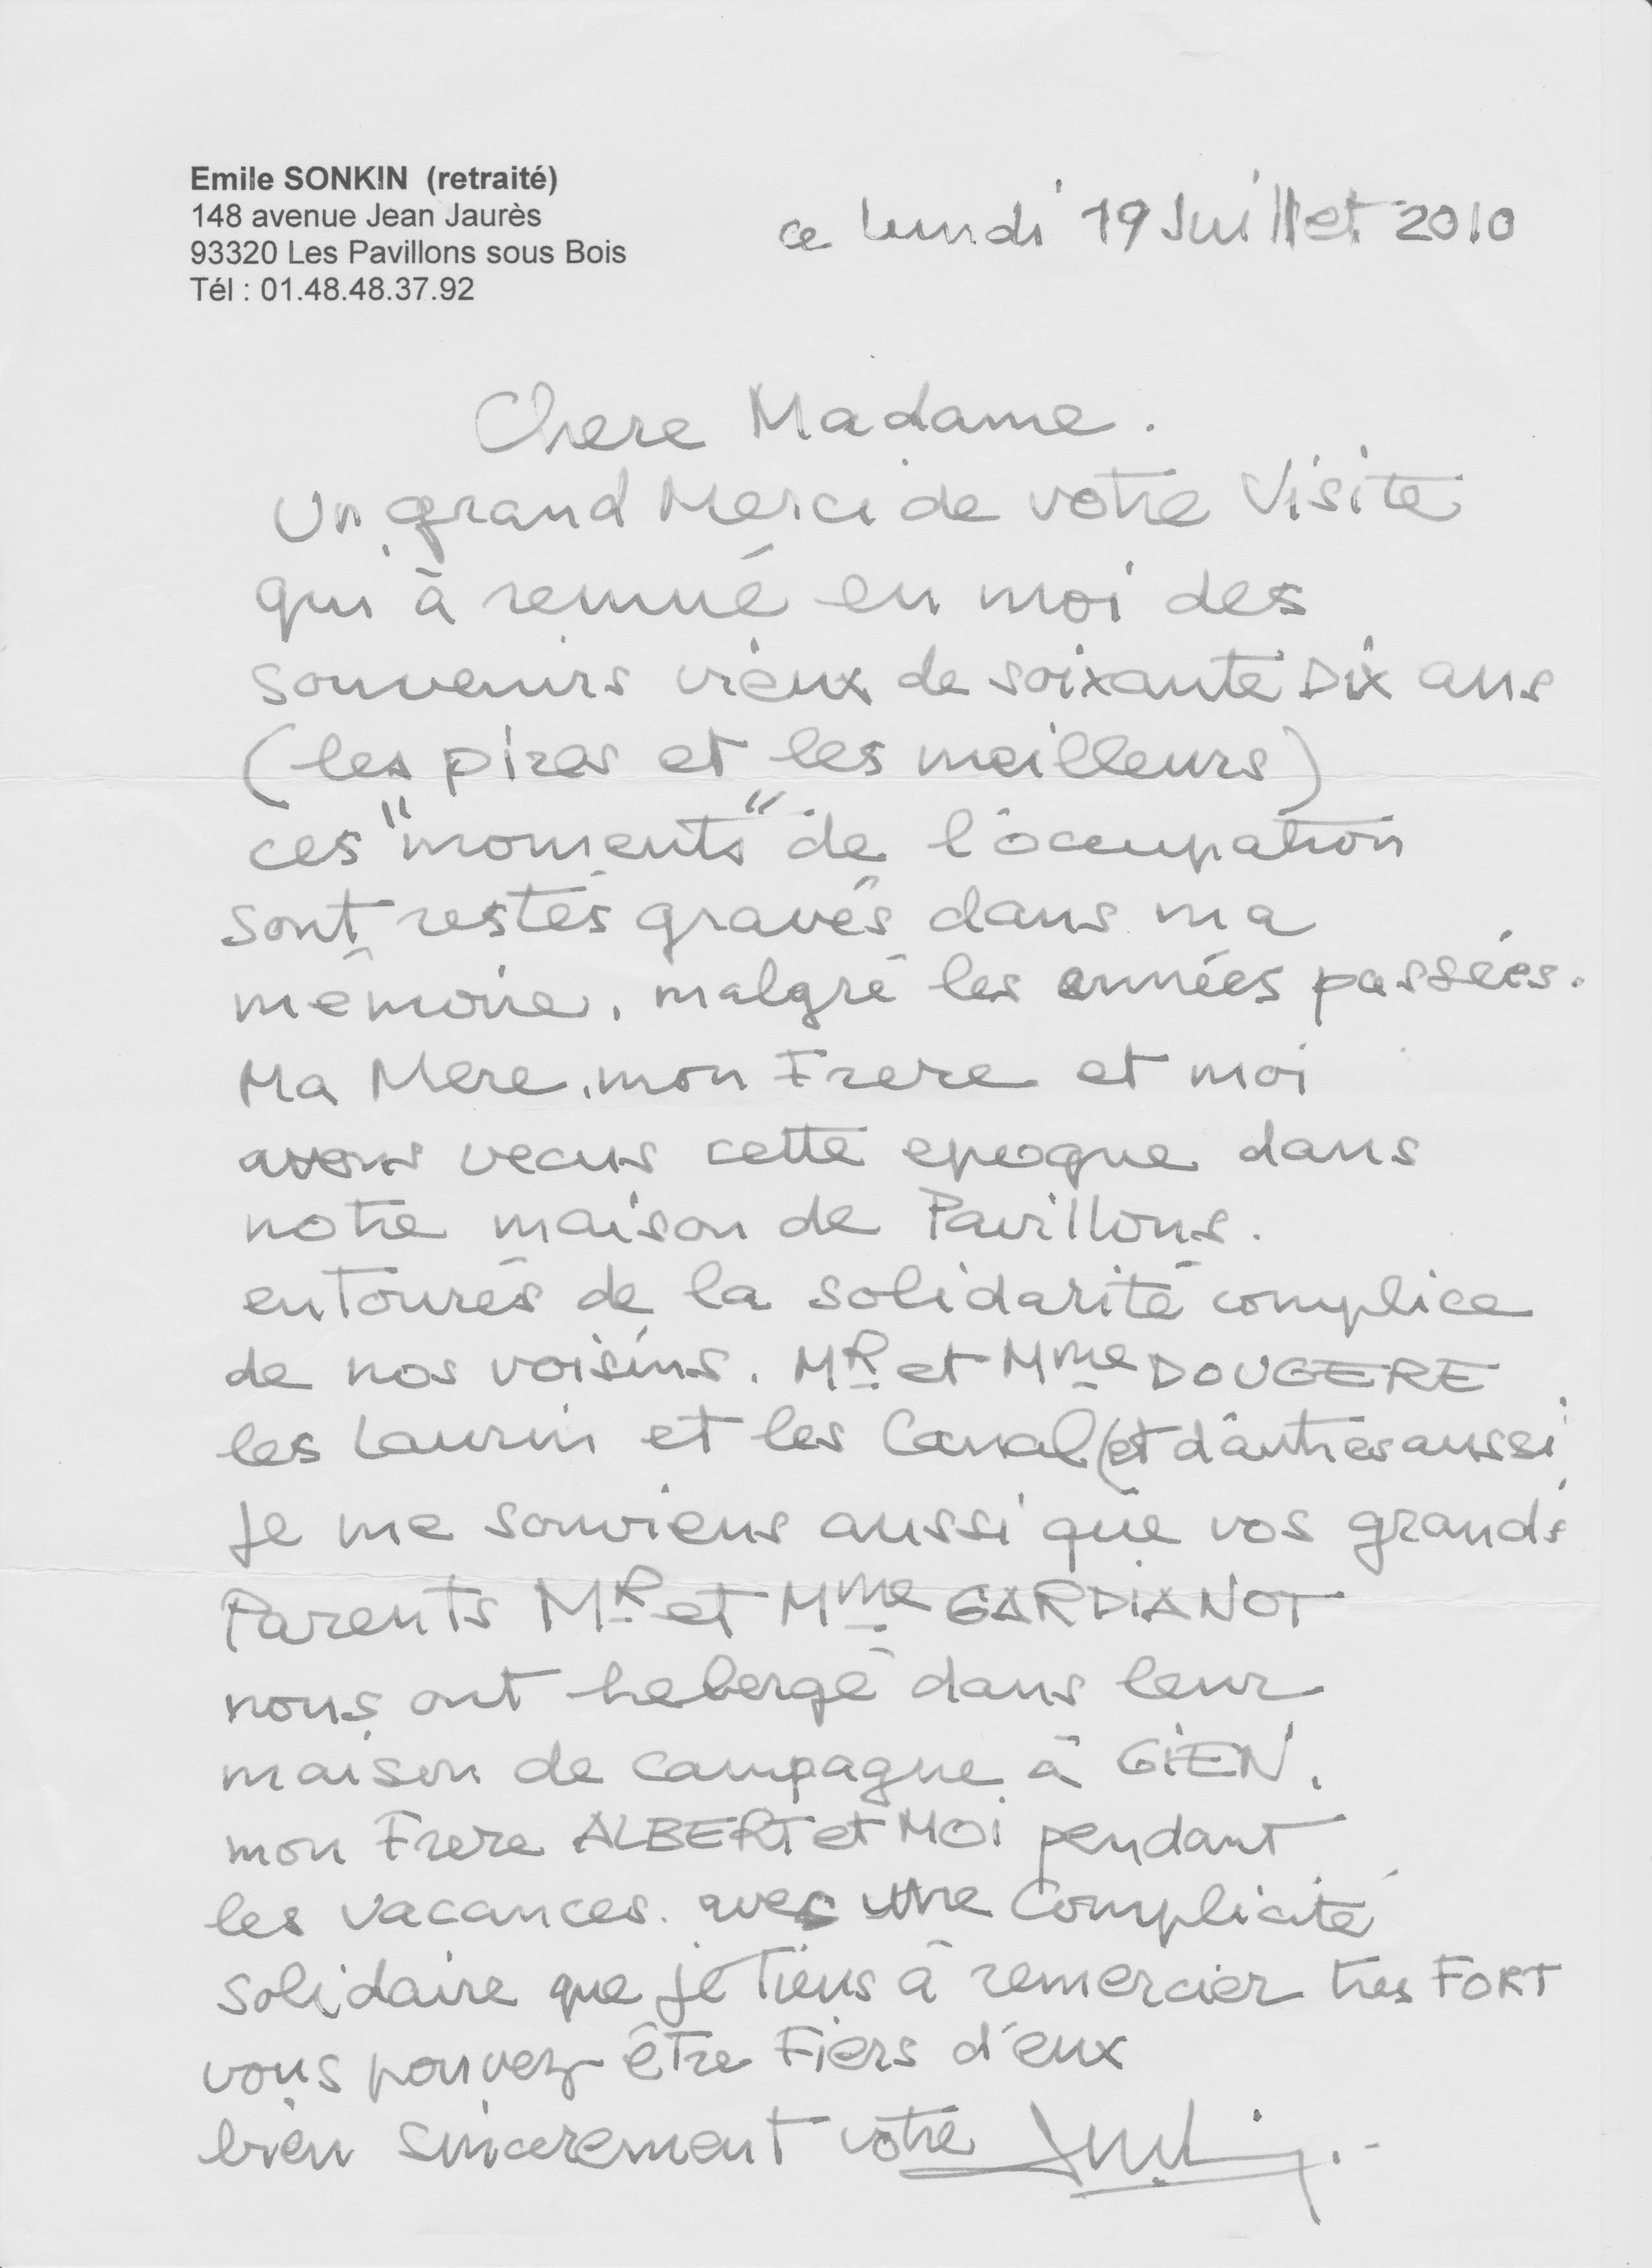 Emile SONKIN (retraité)
148 avenue Jean Jaurès
93320 Les Pavillons sous Bois
Tél : 01.48.48.37.92
ce lundi 19 Juillet 2010
Chere Madame.
Un grand Merci de votre Visite
qui à remué en moi des
souvenirs vieux de soixante Dix ans
(les pires et les meilleurs)
ces "moments" de l'occupation
sont restés gravés dans ma
mémoire, malgré les années passées.
Ma Mere, mon Frere et moi
avons vecus cette epoque dans
notre maison de Pavillons.
entourés de la solidarité complice
de nos voisins. MR et Mme DOUGERE
les Laurin et les Canal (et d'autres aussi
Je me souviens aussi que vos grands
Parents MR et Mme GARDIANOT
nous ont hebergé dans leur
maison de campagne à GIEN,
mon Frere ALBERT et MOi pendant
les vacances. avec une Complicité
solidaire que je Tiens à remercier tres FORT
vous pouvez être Fiers d'eux
bien sincerement votre